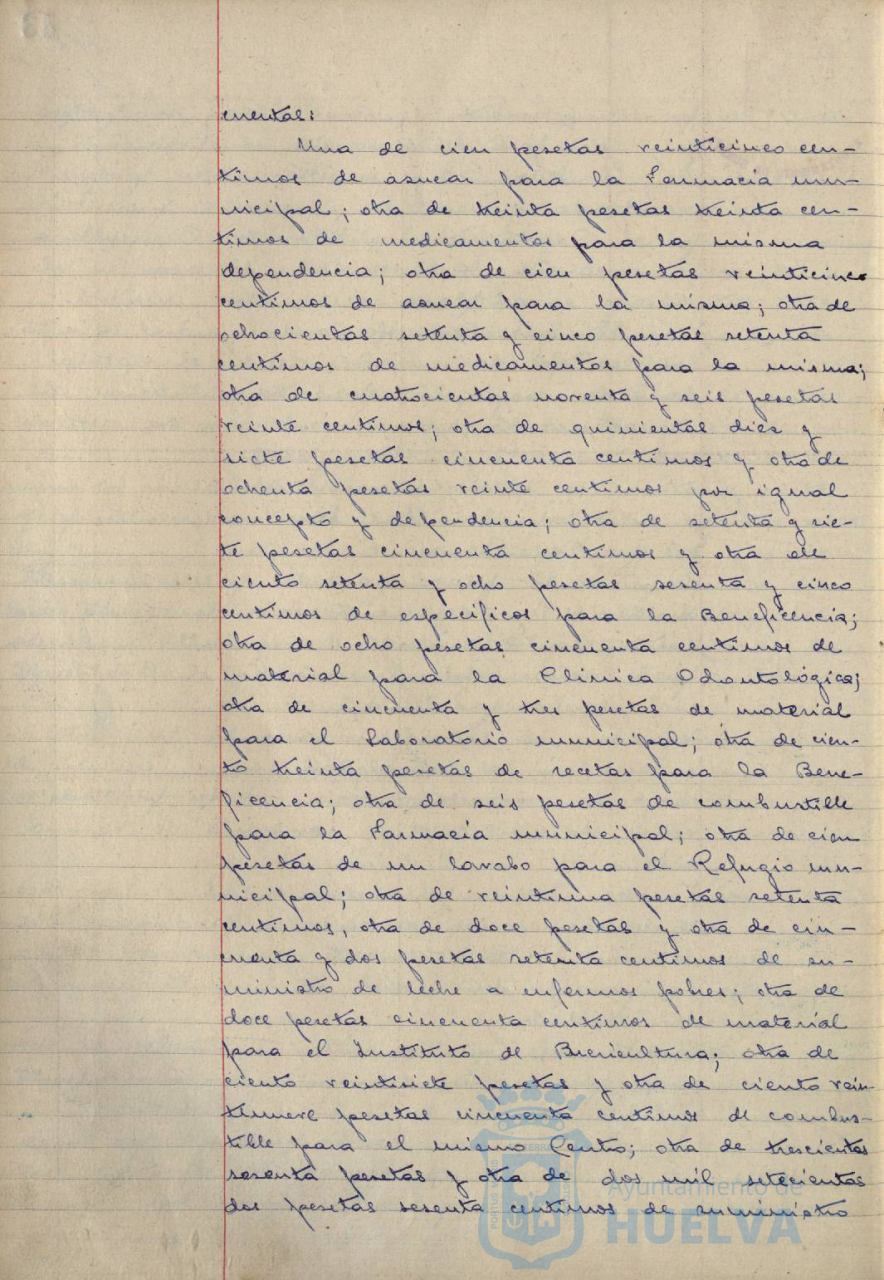 cuentas:
Una de cien pesetas veinticinco cen-
timos de azucar para la Farmacia mu-
nicipal; otra de treinta pesetas treinta cen-
timos de medicamentos para la misma
dependencia; otra de cien pesetas veinticinco
centimos de azucar para la misma; otra de
ochocientas setenta y cinco pesetas setenta
centimos de medicamentos para la misma;
otra de cuatrocientas noventa y seis pesetas
veinte centimos; otra de quinientas diez y
siete pesetas cincuenta centimos y otra de
ochenta pesetas veinte centimos por igual
concepto y dependencia; otra de setenta y sie-
te pesetas cincuenta centimos y otra de
ciento setenta y ocho pesetas sesenta y cinco
centimos de especificos para la Beneficencia;
otra de ocho pesetas cincuenta centimos de
material para la Clinica Odontológica;
otra de cincuenta y tres pesetas de material
para el Laboratorio municipal; otra de cien-
to treinta pesetas de recetas para la Bene-
ficencia; otra de seis pesetas de combustible
para la Farmacia municipal; otra de cien
pesetas de un lavabo para el Refugio mu-
nicipal; otra de veintiuna pesetas setenta
centimos, otra de doce pesetas y otra de cin-
cuenta y dos pesetas setenta centimos de su-
ministro de leche a enfermos pobres; otra de
doce pesetas cincuenta centimos de material
para el Instituto de Puericultura; otra de
ciento veintisiete pesetas y otra de ciento vein-
tinueve pesetas cincuenta centimos de combus-
tible para el mismo Centro; otra de trescientas
sesenta pesetas y otra de dos mil setecientas
dos pesetas sesenta centimos de suministro
Ayuntamiento de
HUELVA